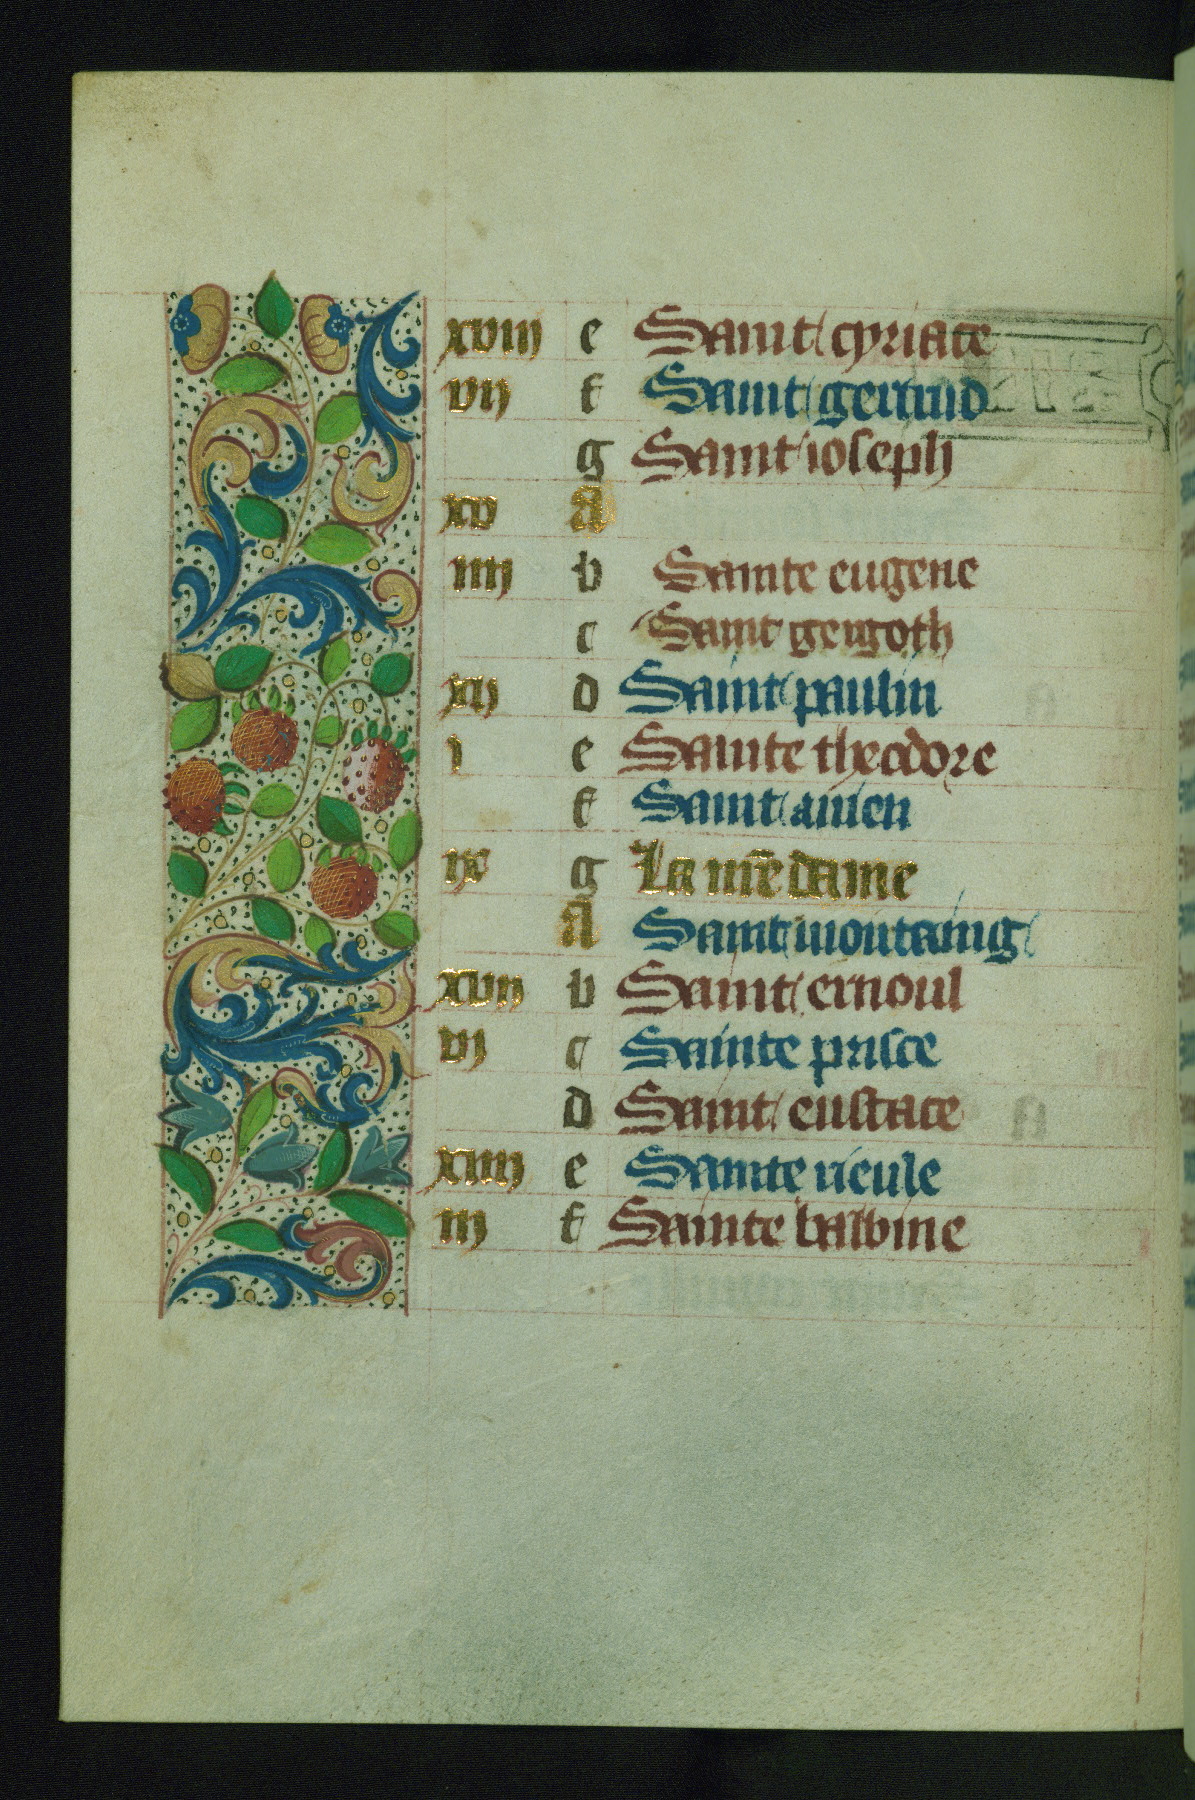 xviii e Saint cyriace
vii f Saint gertrud
g Saint ioseph
xv A
iiii b Sainte eugene
c Saint gergoth
xii d Saint paulin
i e Sainte theodore
f Saint
ix g La nr̄e dame
A Saint
xvii b Saint ernoul
vi c Sainte prisce
d Saint eustace
xiiii e Sainte rieule
iii f Sainte balbine